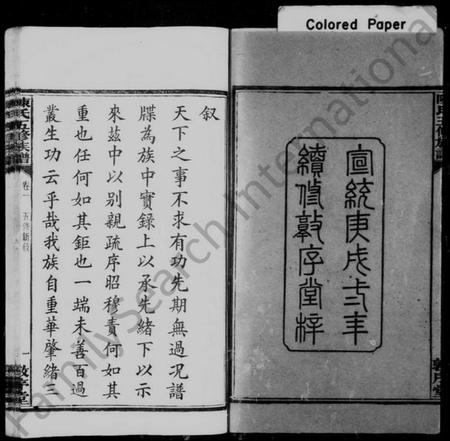 Colored Paper
宣統庚戌三年
續修敦序堂梓
敘
天下之事不求有功先期無過況譜
牒為族中實錄上以承先緒下以示
來茲中以別親疏序昭穆責何如其
重也任何如其鉅也一端未善百過
叢生功云乎哉我族自重華肇緒三
陳氏五修族譜
卷一
五修新敘
一
敦序堂
FamilySearch International